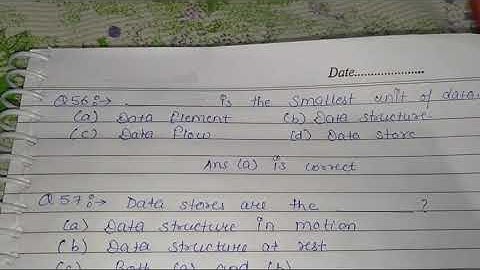 Date.....................
Q56:→ . ______ is the smallest unit of data.
(a) Data Element (b) Data structure
(c) Data flow (d) Data store
Ans (a) is correct
Q57:→ Data stores are the ______?
(a) Data structure in motion
(b) Data structure at rest
(c) Both (a) and (b)